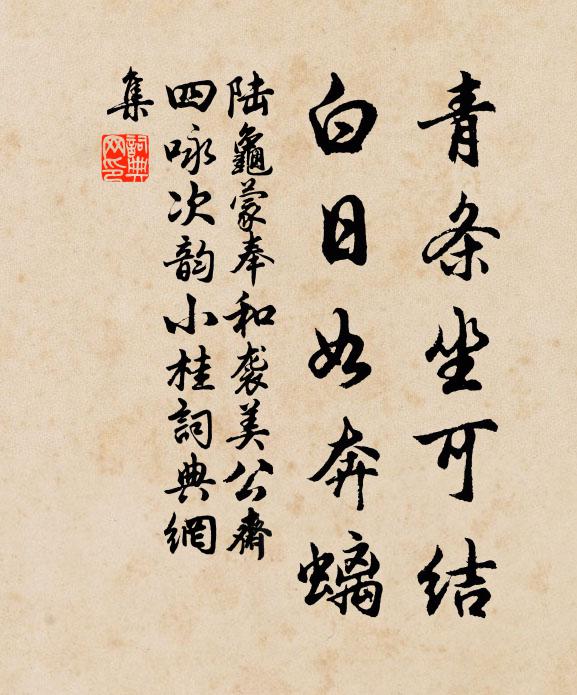 青条坐可结
白日如奔螭
陆龜蒙奉和袭美公齋
四咏次韵小桂詞典網
集
詞典
网印